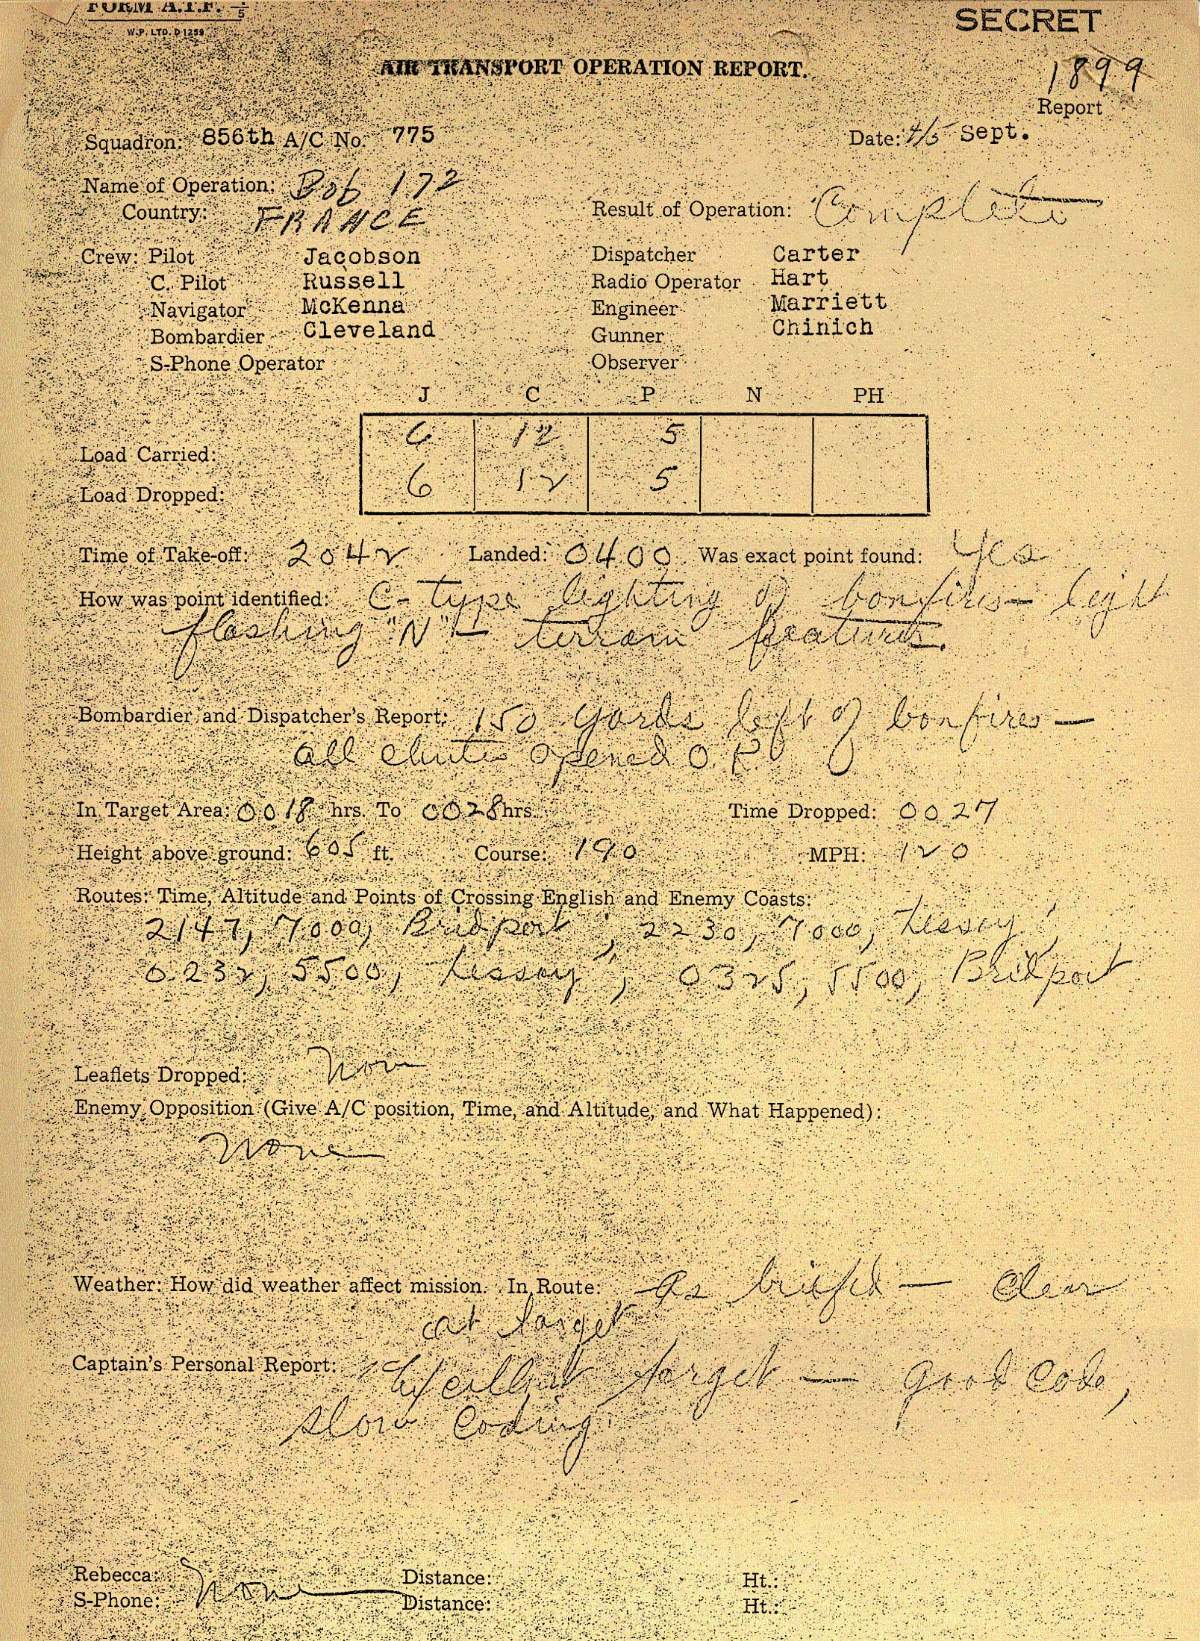 FORM A.T.F. 1/5
SECRET
W.P. LTD. D1259
AIR TRANSPORT OPERATION REPORT.
1899
Report
Squadron: 856th A/C No. 775 Date: 4/5 Sept.
Name of Operation: Bob 172
Country: FRANCE Result of Operation: Complete
Crew: Pilot Jacobson Dispatcher Carter
C. Pilot Russell Radio Operator Hart
Navigator McKenna Engineer Marriett
Bombardier Cleveland Gunner Chinich
S-Phone Operator Observer
J C P N PH
Load Carried: 6 12 5
Load Dropped: 6 12 5
Time of Take-off: 2042 Landed: 0400 Was exact point found: Yes
How was point identified: C-type lighting of bonfires — light
flashing "N" — terrain features.
Bombardier and Dispatcher's Report: 150 yards left of bonfires —
all chutes opened O.K.
In Target Area: 0018 hrs. To 0028 hrs. Time Dropped: 0027
Height above ground: 605 ft. Course: 190 MPH: 120
Routes: Time, Altitude and Points of Crossing English and Enemy Coasts:
2147, 7000, Bridport; 2230, 7000, Lessay;
0232, 5500, Lessay; 0325, 5500, Bridport
Leaflets Dropped: None
Enemy Opposition (Give A/C position, Time, and Altitude, and What Happened):
None
Weather: How did weather affect mission. In Route: As briefed — Clear
at target
Captain's Personal Report: Excellent target — good code,
slow coding.
Rebecca: None Distance: Ht.:
S-Phone: Distance: Ht.: